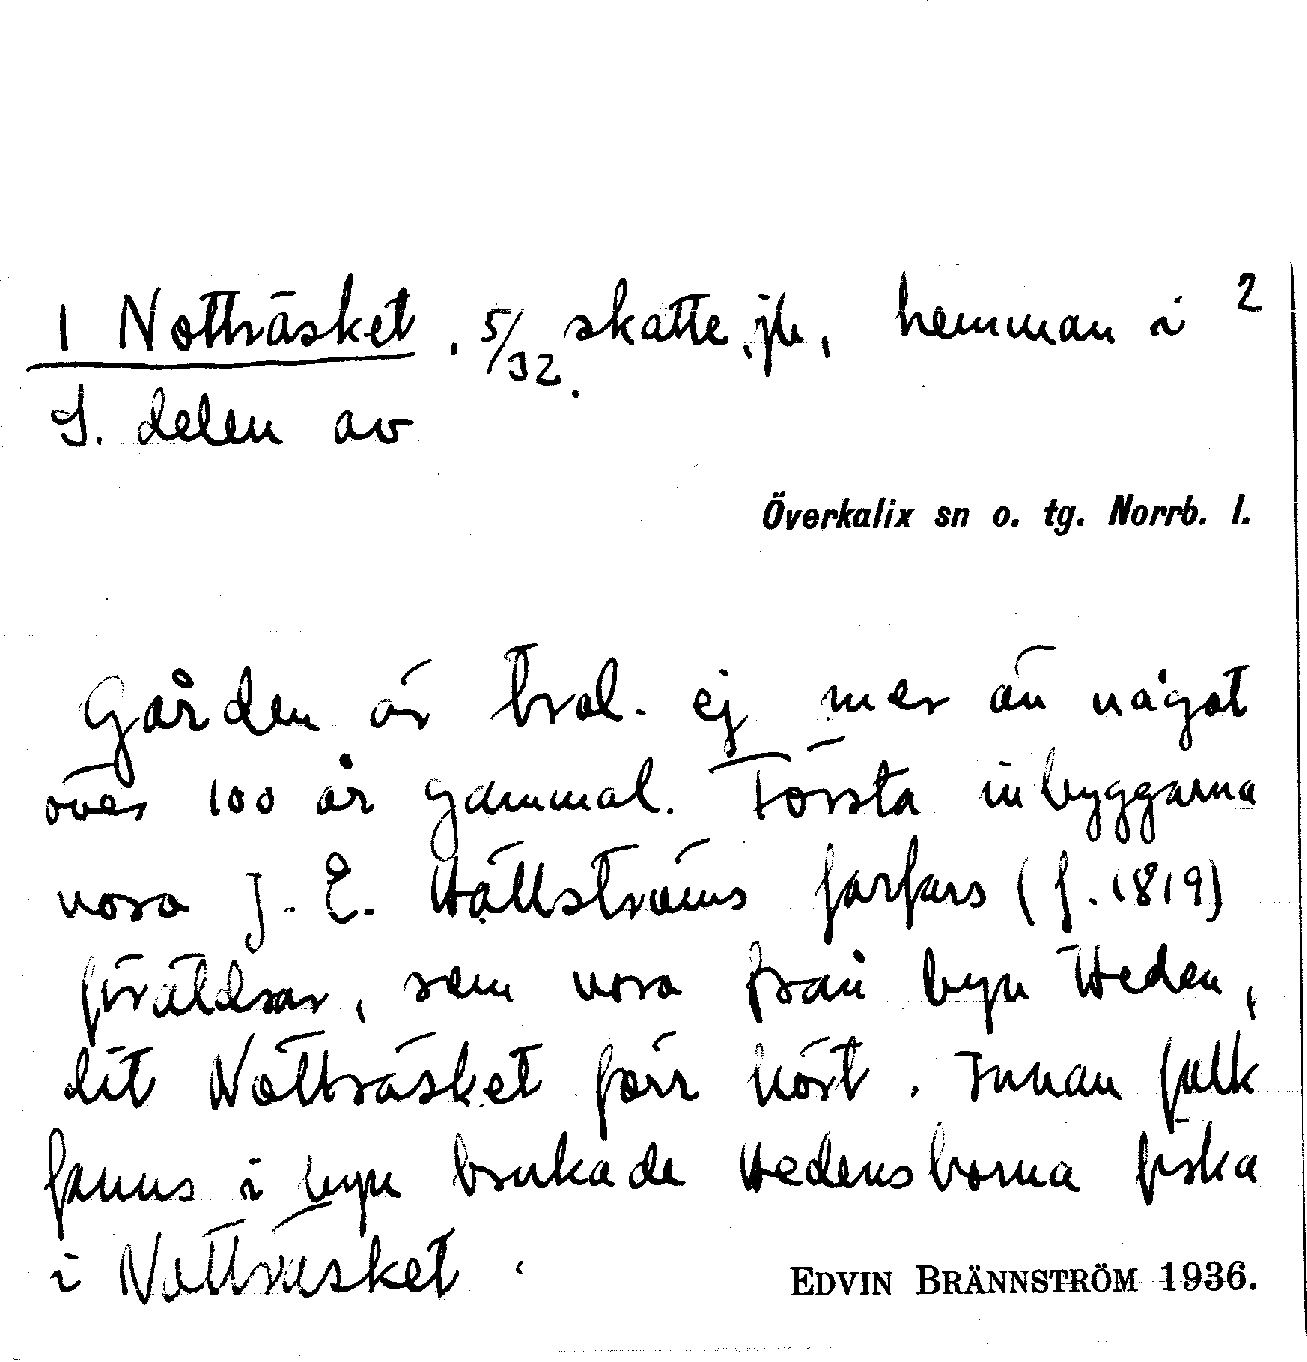 1 Notträsket, 5/32 skatte, jb, hemman i 2
S. delen av
Överkalix sn o. tg. Norrb. l.
Gården är trol. ej mer än något
över 100 år gammal. Första inbyggarna
vora J. E. Hällströms farfars (f. 1819)
föräldrar, som vora från byn Heden,
dit Notträsket förr hört. Innan folk
fanns i byn brukade Hedensborna fiska
i Notträsket.
EDVIN BRÄNNSTRÖM 1936.